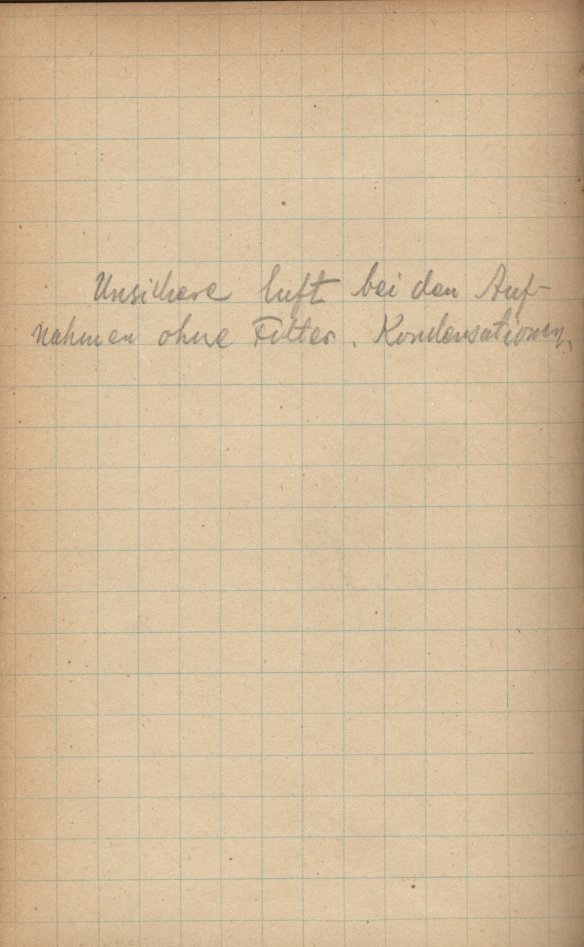 Unsichere Luft bei den Auf-
nahmen ohne Filter. Kondensationen.